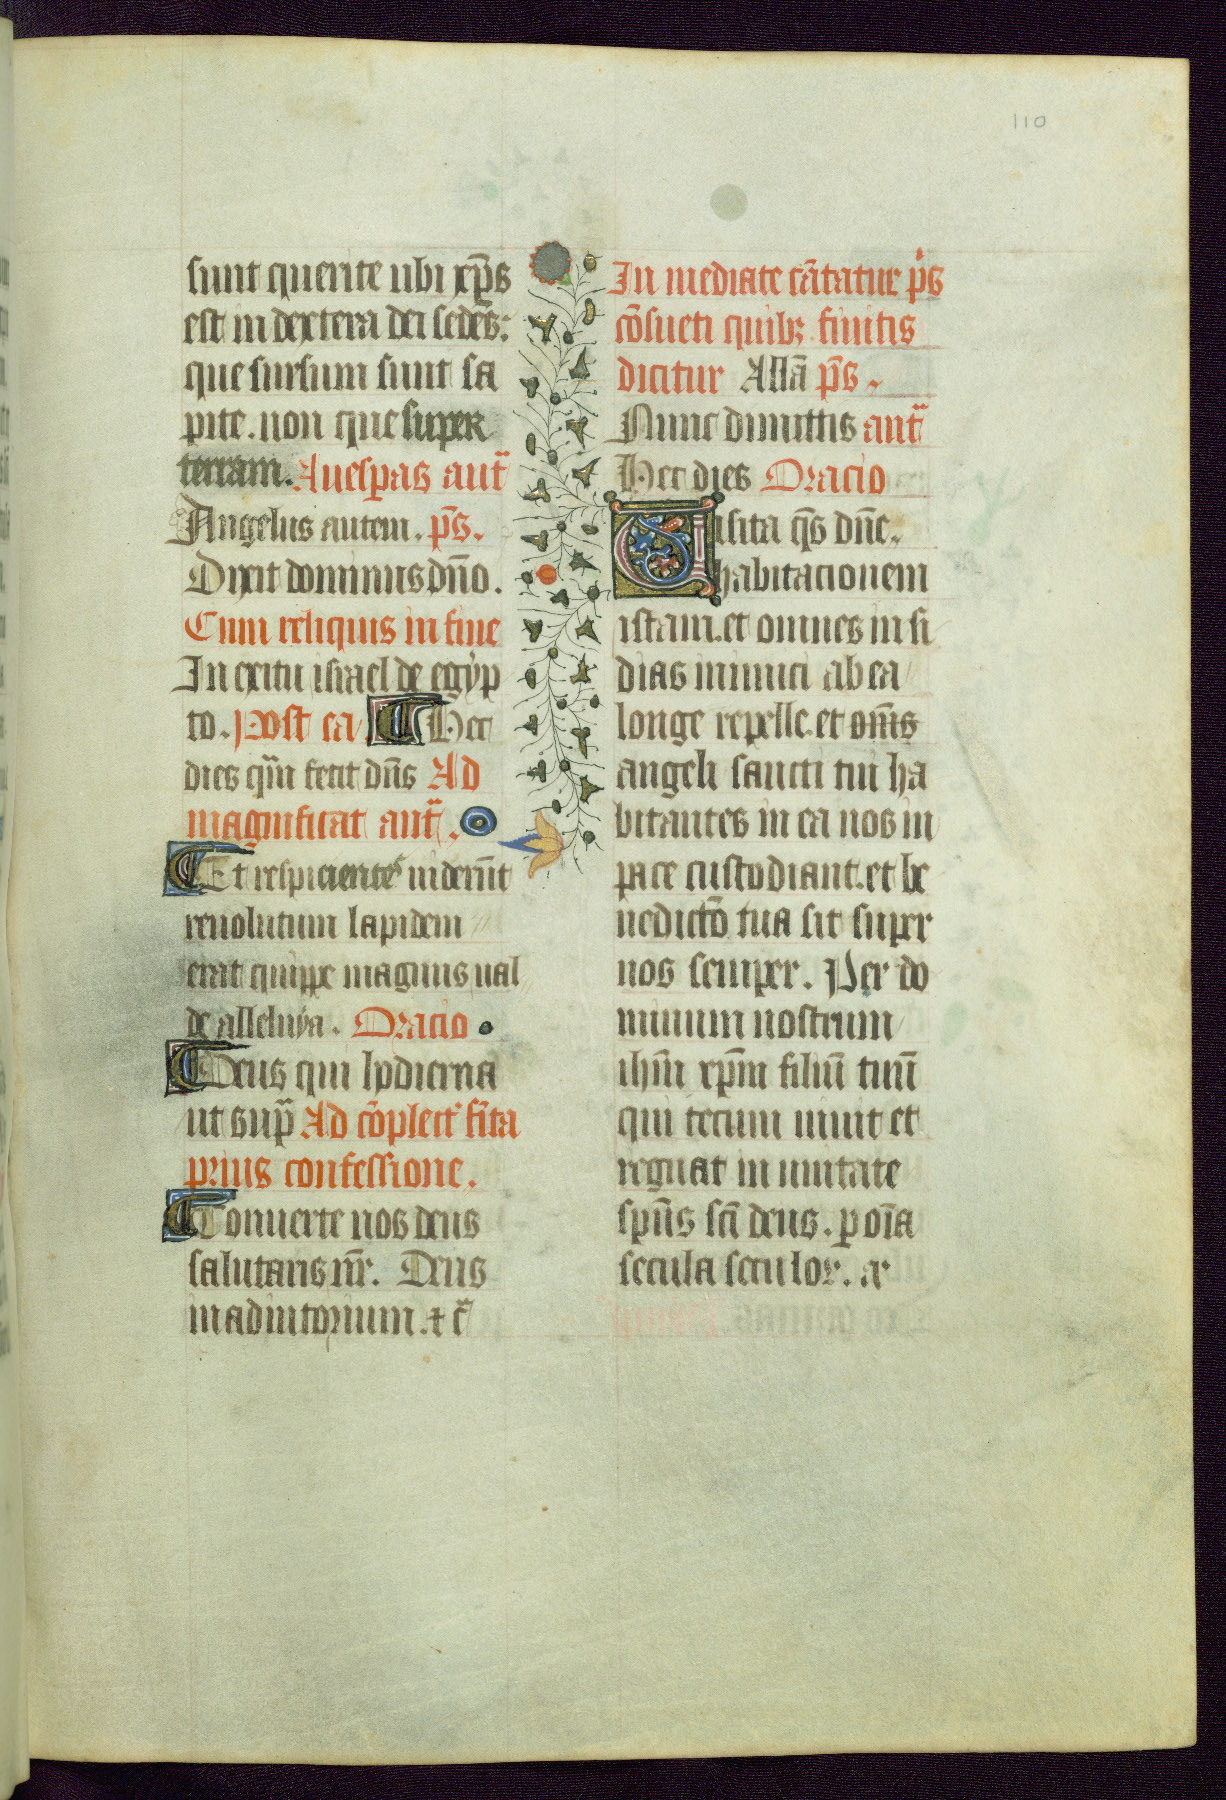 110
sunt querite ubi xp̄s
est in dextera dei sedēs:
que sursum sunt sa
pite. non que super
terram. A uesp̄as ant̄
Angelus autem. p̄s.
Dixit dominus dn̄o.
Cum reliquis in fine
In exitu israel de egyp
to. Post ea Hec
dies qm̄ fecit dn̄s Ad
magnificat ant̄.
Et respicientes uiderūt
reuolutum lapidem
erat quippe magnus ual
de alleluya. Oracio
Deus qui hodierna
ut sup̄ Ad cōplect' fc̄ta
prius confessione.
Conuerte nos deus
salutaris nr̄. Deus
in adiutorium. et c̄
In mediate cātatur p̄s
cōsueti quibꝫ finitis
dicitur Allā p̄s.
Nunc dimittis ant̄
Hec dies Oracio
Uisita qs̄ dn̄e.
habitacionem
istam. et omnes insi
dias inimici ab ea
longe repelle. et om̄s
angeli sancti tui ha
bitantes in ea nos in
pace custodiant. et be
nedictō tua sit super
nos semper. Per do
minum nostrum
ihm̄ xp̄m filiū tuū
qui tecum uiuit et
regnat in unitate
spūs scī deus. p oīa
secula seculor.